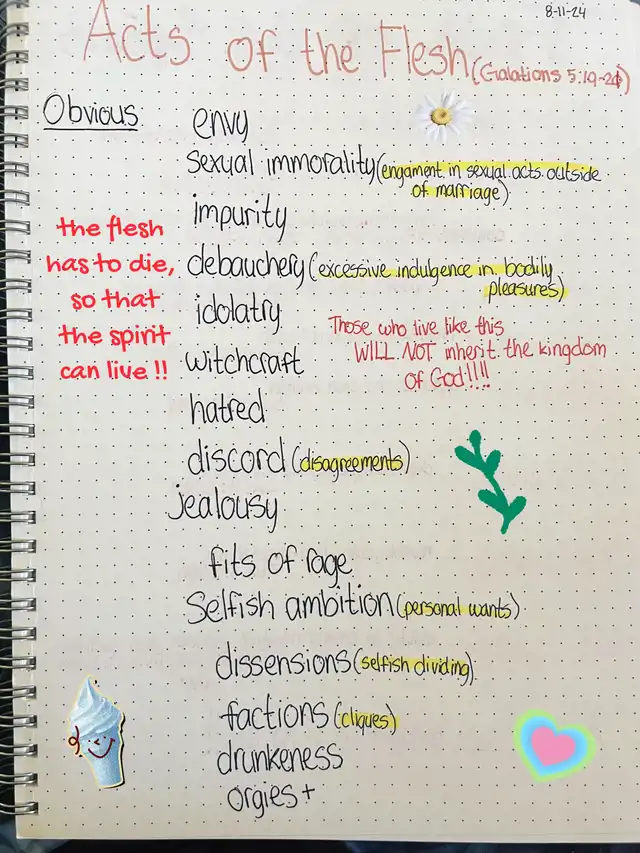 8-11-24
Acts of the Flesh (Galations 5:19-21)
Obvious
envy
sexual immorality (engament in sexual acts outside
of marriage)
impurity
the flesh
has to die,
so that
the spirit
can live !!
debauchery (excessive indulgence in bodily
pleasures)
idolatry
Those who live like this
WILL NOT inherit the kingdom
of God!!!!
witchcraft
hatred
discord (disagreements)
jealousy
fits of rage
Selfish ambition (personal wants)
dissensions (selfish dividing)
factions (cliques)
drunkeness
orgies +